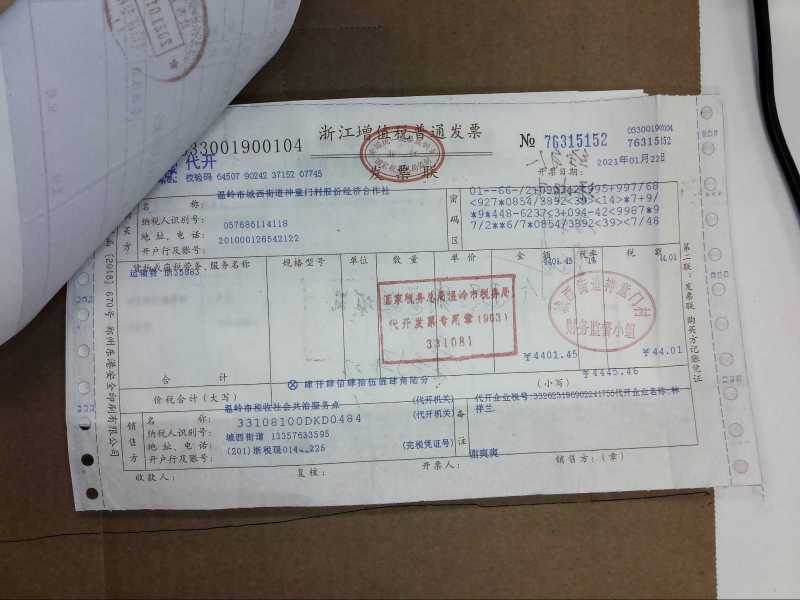 033001900104
浙江增值税普通发票
发票联
№ 76315152
033001900104
76315152
代开
校验码 64507 90242 37152 07745
开票日期:
2021年01月22日
购买方
名称:
温岭市城西街道神童门村股份经济合作社
纳税人识别号:
057686114118
地址、电话:
201000126542122
开户行及账号:
密码区
<927*0854/3892<39><14>*7+9/
*9*448-6237<3+094-42<9987*9
7/2**6/7*0854/3892<39><7/48
货物或应税劳务、服务名称
规格型号
单位
数量
单价
金额
税率
税额
运输费 浙J5883
4401.45
1%
44.01
国家税务总局温岭市税务局
代开发票专用章(903)
331081
城西街道神童门村
财务监督小组
合计
¥4401.45
¥44.01
价税合计(大写)
肆仟肆佰肆拾伍圆肆角陆分
(小写)
¥4445.46
销售方
名称:
温岭市税收社会共治服务点
(代开机关)
纳税人识别号:
33108100DKD0484
(代开机关)
地址、电话:
城西街道 13357633595
开户行及账号:
(完税凭证号)
备注
收款人:
复核:
开票人:
谢爽爽
销售方:(章)
第二联:发票联 购买方记账凭证